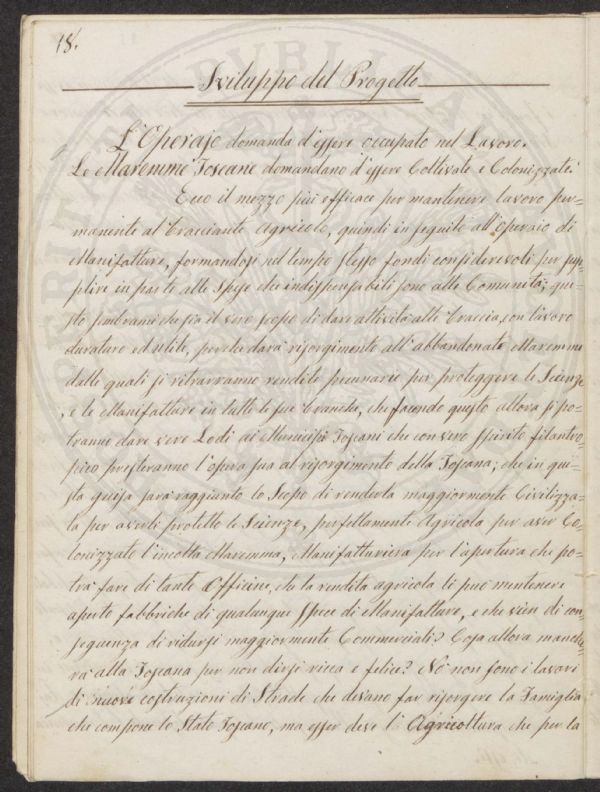 18.
Sviluppo del Progetto
L'Operajo domanda d'essere occupato nel Lavoro.
Le Maremme Toscane domandano d'essere Coltivate e Colonizzate.
Ecco il mezzo più efficace per mantenere lavoro per=
manente al Bracciante agricolo, quindi in seguito all'operaio di
Manifatture, formandosi nel tempo stesso fondi considerevoli per sup=
plire in parte alle Spese che indispensabili sono alle Comunità; que=
sto sembrami che sia il vero scopo di dare attività alle braccia, con lavoro
duraturo ed utile, perche darà risorgimento all'abbandonate Maremme
dalle quali si ritrarranno rendite pecuniarie per proteggere le Scienze
, e le Manifatture in tutte le sue branche, che facendo questo allora si po=
tranno dare vere Lodi ai Municipi Toscani che con vero spirito filantro=
pico presteranno l'opera sua al risorgimento della Toscana; che in que=
sta guisa sarà raggiunto lo Scopo di renderla maggiormente Civilizza=
ta per averli protetto le Scienze, perfettamente Agricola per aver Co=
lonizzato l'incolta Maremma, Manifatturiera per l'apertura che po=
trà fare di tante Officine, che la rendita agricola li può mantenere
aperte fabbriche di qualunque specie di Manifatture, e che vien di con=
seguenza di ridursi maggiormente Commerciali? Cosa allora manche=
rà alla Toscana per non dirsi ricca e felice? Nò non sono i lavori
di nuove costruzioni di Strade che devano far risorgere la Famiglia
che compone lo Stato Toscano, ma esser deve l'Agricoltura che per la